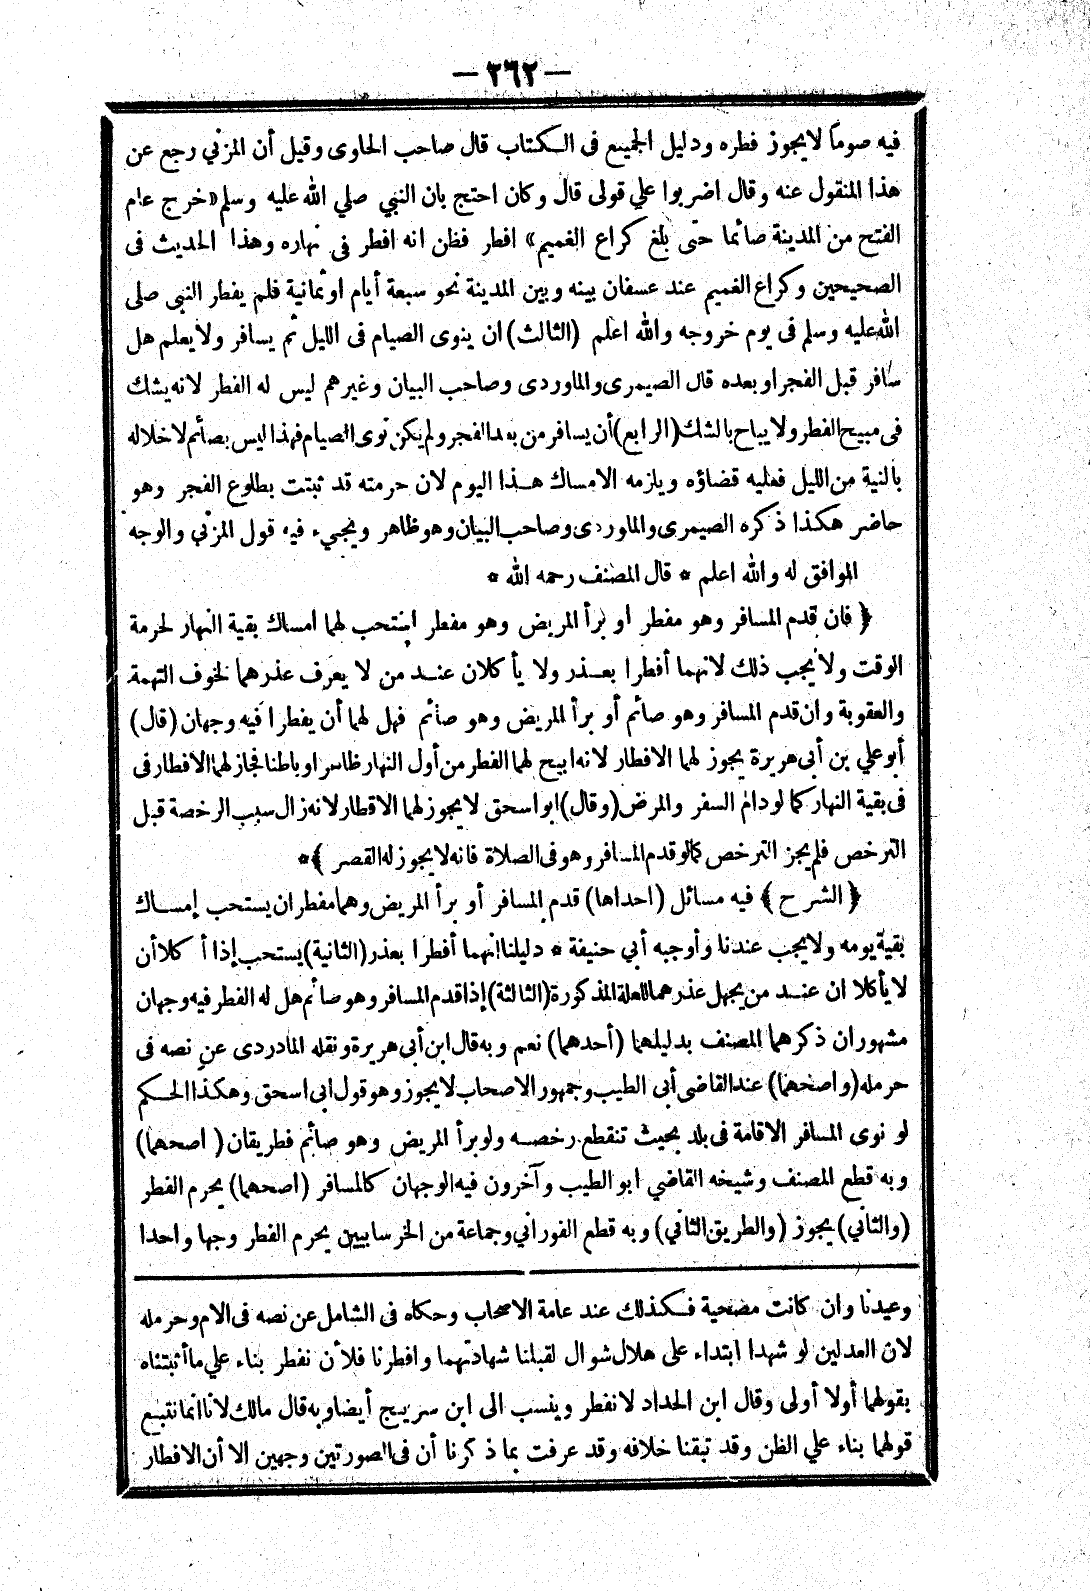 — ٢٦٢ —
فيه صوماً لا يجوز فطره ودليل الجميع فى الكتاب قال صاحب الحاوى وقيل أن المزني رجع عن
هذا المنقول عنه وقال اضربوا علي قولى قال وكان احتج بان النبي صلي الله عليه وسلم «خرج عام
الفتح من المدينة صائما حتى بلغ كراع الغميم» افطر فظن انه افطر فى نهاره وهذا الحديث فى
الصحيحين وكراع الغميم عند عسفان بينه وبين المدينة نحو سبعة أيام اوثمانية فلم يفطر النبى صلى
الله عليه وسلم فى يوم خروجه والله اعلم (الثالث) ان ينوى الصيام فى الليل ثم يسافر ولا يعلم هل
سافر قبل الفجر او بعده قال الصيمرى والماوردى وصاحب البيان وغيرهم ليس له الفطر لانه يشك
فى مبيح الفطر ولا يباح بالشك (الرابع) أن يسافر من بعد الفجر ولم يكن نوى الصيام فهذا ليس بصائم لاخلاله
بالنية من الليل فعليه قضاؤه ويلزمه الامساك هذا اليوم لان حرمته قد ثبتت بطلوع الفجر وهو
حاضر هكذا ذكره الصيمرى والماوردى وصاحب البيان وهو ظاهر ويجيء فيه قول المزني والوجه
الموافق له والله اعلم * قال المصنف رحمه الله *
﴿ فان قدم المسافر وهو مفطر او برأ المريض وهو مفطر استحب لهما امساك بقية النهار لحرمة
الوقت ولا يجب ذلك لانهما أفطرا بعذر ولا يأكلان عند من لا يعرف عذرهما لخوف التهمة
والعقوبة وان قدم المسافر وهو صائم أو برأ المريض وهو صائم فهل لهما أن يفطرا فيه وجهان (قال)
أبو علي بن أبى هريرة يجوز لهما الافطار لانه ابيح لهما الفطر من أول النهار ظاهرا وباطنا فجاز لهما الافطار فى
فى بقية النهار كما لو دام السفر والمرض (وقال) ابو اسحق لا يجوز لهما الافطار لانه زال سبب الرخصة قبل
الترخص فلم يجز الترخص كما لو قدم المسافر وهو فى الصلاة فانه لا يجوز له القصر ﴾*
﴿ الشرح ﴾ فيه مسائل (احداها) قدم المسافر أو برأ المريض وهما مفطران يستحب إمساك
بقية يومه ولا يجب عندنا وأوجبه أبي حنيفة * دليلنا انهما أفطرا بعذر (الثانية) يستحب إذا أكلا أن
لا يأكلا ان عند من يجهل عذرهما للعلة المذكورة (الثالثة) إذا قدم المسافر وهو صائم هل له الفطر فيه وجهان
مشهوران ذكرهما المصنف بدليلهما (أحدهما) نعم وبه قال ابن أبى هريرة ونقله المادردى عن نصه فى
حرمله (واصحهما) عند القاضى أبى الطيب وجمهور الاصحاب لا يجوز وهو قول ابى اسحق وهكذا الحكم
لو نوى المسافر الاقامة فى بلد بحيث تنقطع رخصه ولو برأ المريض وهو صائم فطريقان (اصحهما)
وبه قطع المصنف وشيخه القاضي ابو الطيب وآخرون فيه الوجهان كالمسافر (اصحهما) يحرم الفطر
(والثاني) يجوز (والطريق الثاني) وبه قطع الفوراني وجماعة من الخرسانيين يحرم الفطر وجها واحدا
وعيدنا وان كانت مضحية فكذلك عند عامة الاصحاب وحكاه فى الشامل عن نصه فى الام وحرمله
لان العدلين لو شهدا ابتداء على هلال شوال لقبلنا شهادتهما وافطرنا فلأن نفطر بناء علي ما أثبتناه
بقولهما أولا أولى وقال ابن الحداد لا نفطر وينسب الى ابن سريج أيضا وبه قال مالك لانا انما نتبع
قولهما بناء علي الظن وقد تيقنا خلافه وقد عرفت بما ذكرنا أن فى الصورتين وجهين الا أن الافطار